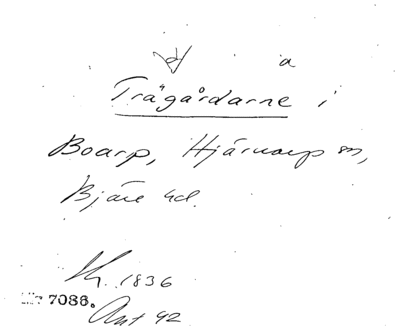 a
Trägårdarne i
Boarp, Hjärnarp sn,
Bjäre hd.
1836
7088.
Ant 42